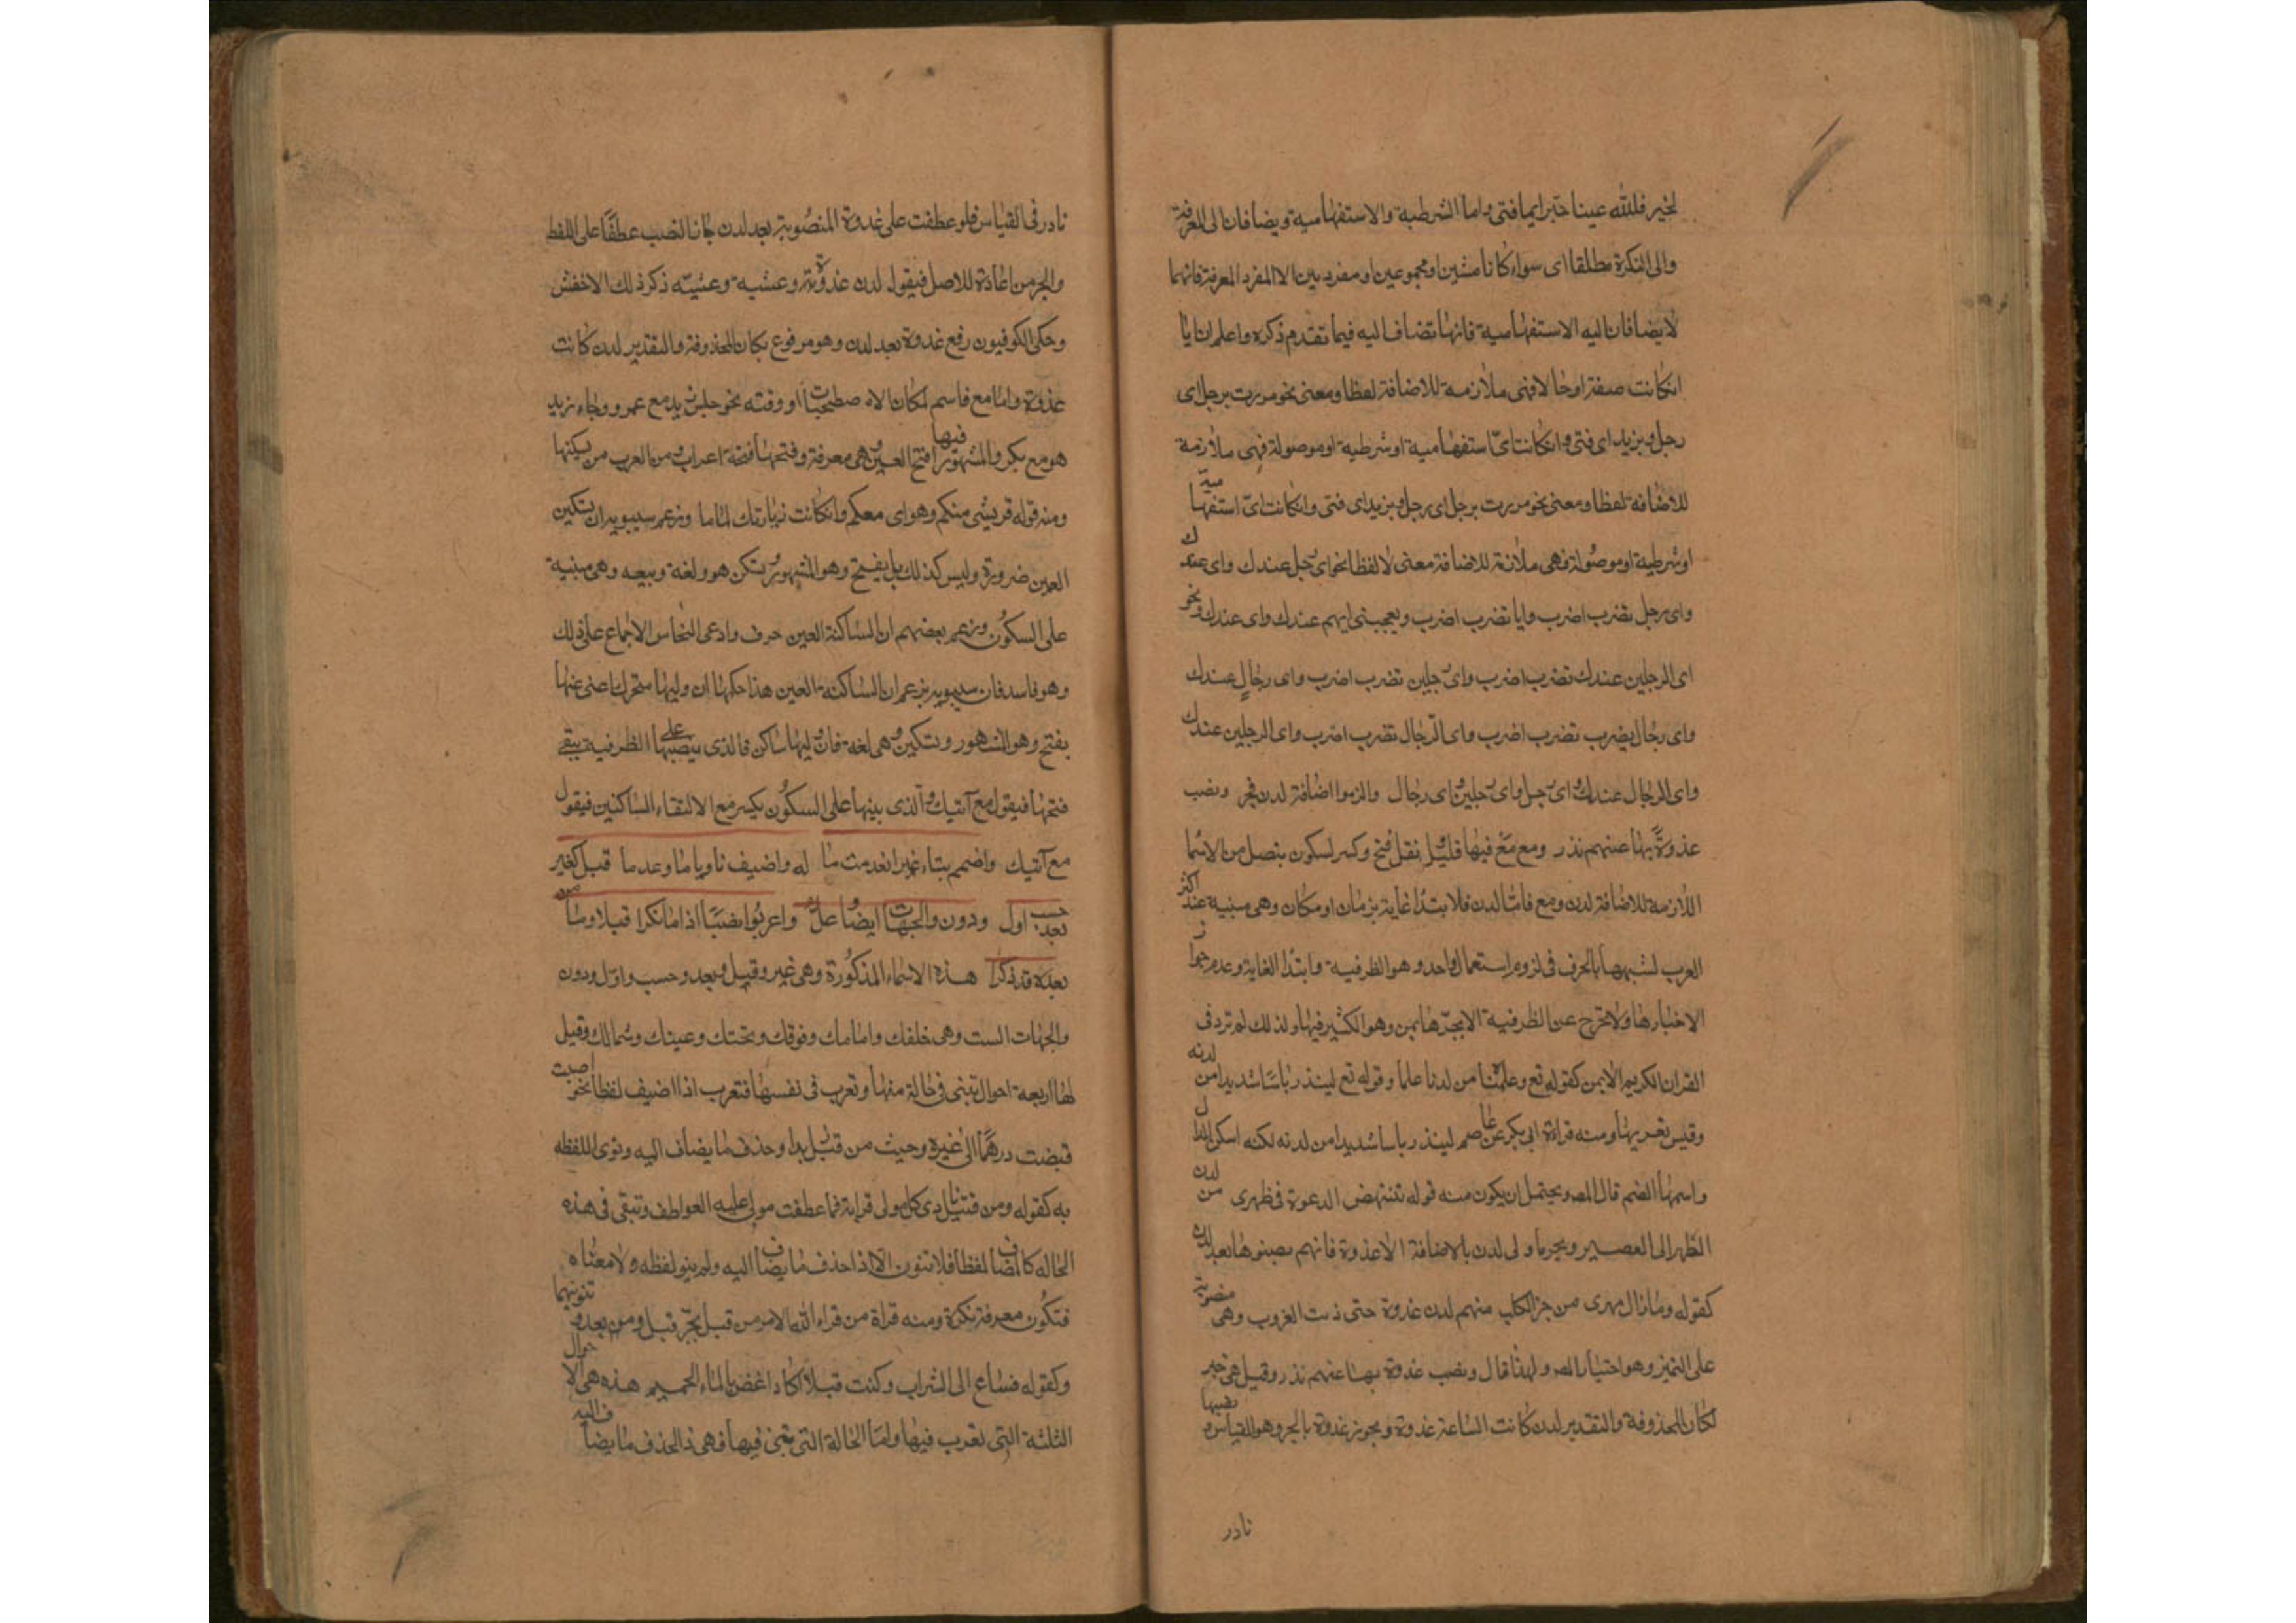 لخير فلله عينا حبتر ايما فتى واما الشرطية والاستفهامية ويضافان الى المعرفة
والى النكرة مطلقا اى سواء كانا مثنيين او مجموعين او مفردين الا المفرد المعرفة فانهما
لا يضافان اليه الا الاستفهامية فانها تضاف اليه فيما تقدم ذكره واعلم ان ايا
ان كانت صفة او حالا فهى ملازمة للاضافة لفظا ومعنى نحو مررت برجل اى
رجل وبزيد اى فتى وان كانت اى استفهامية او شرطية او موصولة فهى ملازمة
للاضافة لفظا ومعنى نحو مررت برجل اى رجل وبزيد اى فتى وان كانت اى استفهامية
او شرطية او موصولة فهى ملازمة للاضافة معنى لا لفظا نحو اى رجل عندك واى عندك
واى رجل تضرب اضرب وايا تضرب اضرب ويعجبنى ايهم عندك واى عندك ونحو
اى الرجلين عندك تضرب اضرب واى رجلين تضرب اضرب واى رجال عندك
واى رجال يضرب تضرب اضرب واى الرجال تضرب اضرب واى الرجلين عندك
واى الرجال عندك واى رجل واى رجلين واى رجال والزموا اضافة لدن فجر ونصب
غدوة بها عنهم ندر ومع مع فيها قليل ونقل فتح وكسر لسكون يتصل من الاسما
اللازمة للاضافة لدن ومع فاما لدن فلابتدا غاية بزمان او مكان وهى مبنية عند اكثر
العرب لشبهها بالحرف فى لزوم استعمال واحد وهو الظرفية وابتدا الغاية وعدم جواز
الاخبار بها ولا تخرج عن الظرفية الا بجرها بمن وهو الكثير فيها ولذلك لم ترد فى
القران الكريم الا بمن كقوله تع وعلمناه من لدنا علما وقوله تع لينذر باسا شديدا من لدنه
وقيس تعربها ومنه قراءة ابى بكر عن عاصم لينذر باسا شديدا من لدنه لكنه اسكن الدال
واشمها الضم قال المص ويحتمل ان يكون منه قوله تنتهض الدعوة فى ظهرى من لدن
الظهر الى العصير ويجر ما ولى لدن بالاضافة الا غدوة فانهم نصبوها بعد لدن
كقوله وما زال مهرى من جز الكلب منهم لدن غدوة حتى دنت الغروب وهى منصوبة
على التميز وهو اختيار المص ولهذا قال ونصب غدوة بها عنهم ندر وقيل هى خبر
لكان المحذوفة والتقدير لدن كانت الساعة غدوة ويجوز غدوة بالجر وهو القياس ونصبها
نادر
نادر فى القياس فلو عطفت على غدوة المنصوبة بعد لدن جاز النصب عطفا على اللفظ
والجر من اعادة للاصل فيقول لدن غدوة وعشية وعشية ذكر ذلك الاخفش
وحكى الكوفيون رفع غدوة بعد لدن وهو مرفوع بكان المحذوفة والتقدير لدن كانت
غدوة واما مع فاسم لمكان الاصطحاب او وقته نحو جلس زيد مع عمرو وجاء زيد
هو مع بكر والمشهور فيها فتح العين وهى معرفة وفتحها فتحة اعراب ومن العرب من يسكنها
ومنه قوله قريشى منكم وهواى معكم وان كانت زيارتك لماما وزعم سيبويه ان تسكين
العين ضرورة وليس كذلك بل يفتح وهو المشهور وتسكن هو ولغة ربيعه وهى مبنية
على السكون وزعم بعضهم ان الساكنة العين حرف وادعى النحاس الاجماع على ذلك
وهو فاسد فان سيبويه زعم ان الساكنة العين هذا حكمها ان وليها متحرك اعنى عنها
يفتح وهو المشهور وتسكين وهى لغة فان وليها ساكن فالذى ينصبها على الظرفية يبقى
فتحها فيقول مع آتيك والذى بينها على السكون يكسر مع الالتقاء الساكنين فيقول
مع آتيك واضمم بناء غيرا ان عدمت ما له واضيف ناويا ما وعدما قبل كغير
بعد حسب اول ودون والجهات ايضا وعل واعربوا نصبا اذا ما نكرا قبلا وما من
بعده قد ذكرا هذه الاسماء المذكورة وهى غير وقبل وبعد وحسب واول ودون
والجهات الست وهى خلفك وامامك وفوقك وتحتك وعينك وشمالك وقيل
لها اربعة احوال تبنى فى حالة منها وتعرب فى نفسها فتعرب اذا اضيف لفظا نحو اصبت
قبضت درهما لا غيره وحيث من قبل بدا وحذف ما يضاف اليه ونوى اللفظه
به كقوله ومن قبل نادى كل مولى قرابة فما عطفت مولى عليه العواطف وتبقى فى هذه
الحاله كالمضاف لفظا فلا تنون الا اذا حذف ما يضاف اليه ولم ينو لفظه ولا معناه
فتكون معرفة نكرة ومنه قراة من قراء لله الامر من قبل بجر قبل ومن بعد وتنوينهما
وكقوله فساغ الى الشراب وكنت قبلا اكاد اغص بالماء الحميم هذه هى الاحوال
الثلثة التى تعرب فيها واما الحالة التى تبنى فيها فهى اذا حذف ما يضاف اليه